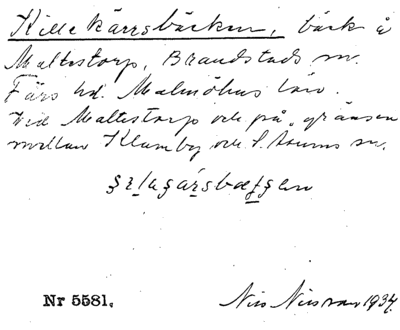 Kille kärrsbäcken, bäck å
Maltestorp, Brandstads sn.
Färs hd. Malmöhus län.
Vid Maltestorp och på gränsen
mellan Klamby och S. Åsums sn.
Nr 5581.
Nils Nilsson 1934.